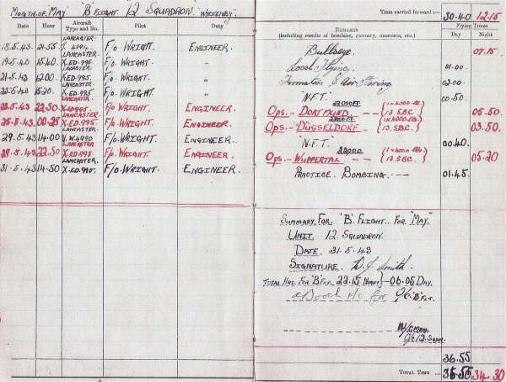 MONTH OF MAY "B" FLIGHT 12 SQUADRON. "WICKENBY"
Time carried forward:— 30.40 12.15
Date Hour Aircraft Type and No. Pilot Duty
REMARKS (including results of bombing, gunnery, exercises, etc.)
Flying Times
Day Night
LANCASTER
18.5.43. 21.55 F/O WRIGHT. ENGINEER. Bullseye 07.15
LANCASTER
19.5.43 15.40 X.ED.995. F/O WRIGHT. " Local Flying. 01.00
LANCASTER
21.5.43 12.00 X.ED.995. F/O WRIGHT. " Formation & Air Firing 03.00
LANCASTER
22.5.43 15.20 X.ED.995 F/O WRIGHT. " "N.F.T." 00.50
LANCASTER
23.5.43. 22.50 X.ED995. F/O WRIGHT. ENGINEER. OPS.— DORTMUND — 05.50
LANCASTER
25.5.43. 00.25 X.ED.995. F/O WRIGHT. ENGINEER. OPS— DÜSSELDORF. — 03.50
LANCASTER
29.5.43. 14.00 F/O WRIGHT. ENGINEER. "N.F.T." 00.40
LANCASTER
29.5.43 22.50 X.ED.995. F/O WRIGHT. ENGINEER. OPS— WUPPERTAL — 05.20
LANCASTER
31.5.43 14.50 X.ED.995. F/O WRIGHT. ENGINEER. PRACTICE BOMBING. 01.45
SUMMARY FOR "B" FLIGHT. FOR "MAY"
UNIT 12 SQUADRON.
DATE 31.5.43
SIGNATURE D.J. Smith.
TOTAL HRS FOR "B" FLT 22.15 NIGHT
DAY.
F/O for O/C "B" FLT.
O/C 12 SQDN.
36.55
TOTAL TIME 36.55 34.30